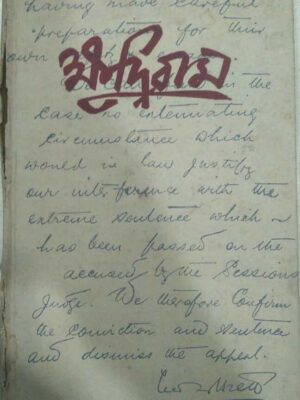 having made careful
preparation for their
own
ক্ষুদিরাম
in the
case no extenuating
circumstance which
would in law justify
our interference with the
extreme sentence which
has been passed on the
accused by the Sessions
Judge. We therefore Confirm
the conviction and sentence
and dismiss the appeal.